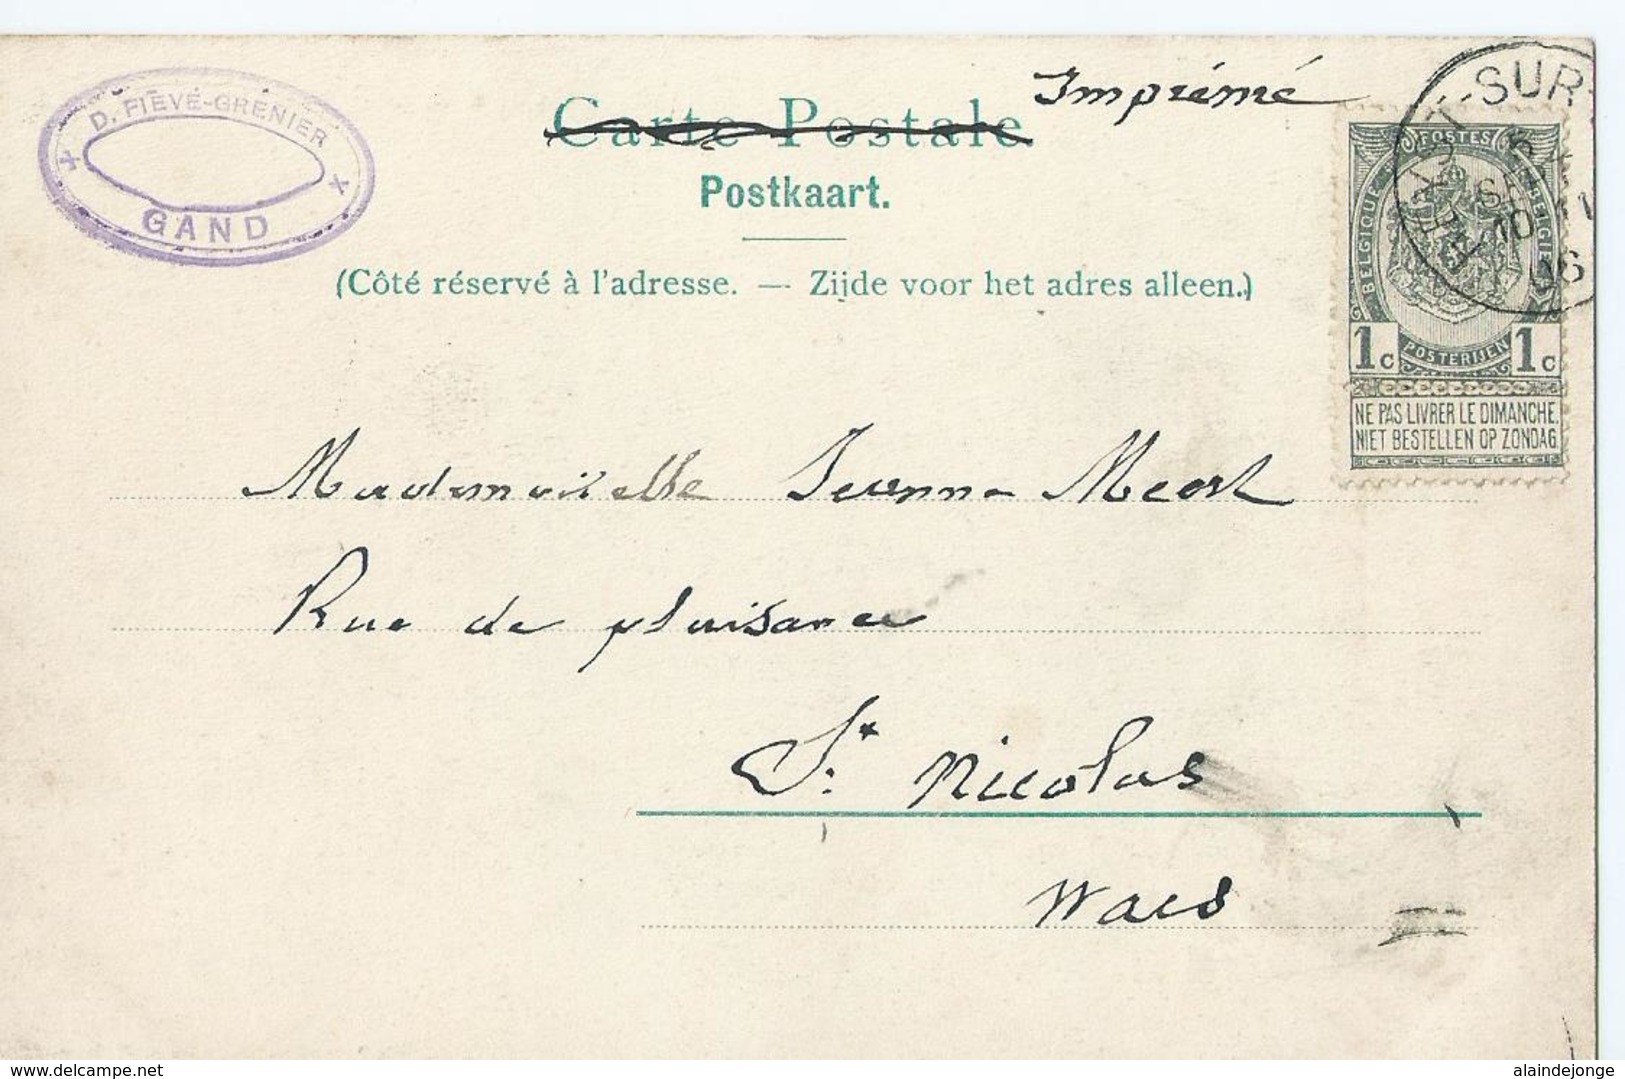 D. FIÉVÉ-GRENIER
GAND
Imprimé
Carte Postale
Postkaart.
(Côté réservé à l'adresse. — Zijde voor het adres alleen.)
SUR
10 11
06
POSTES
BELGIQUE BELGIË
1c POSTERIJEN 1c
NE PAS LIVRER LE DIMANCHE.
NIET BESTELLEN OP ZONDAG
Mademoiselle
Rue de plaisance
St Nicolas
Waes
www.delcampe.net
alaindejonge